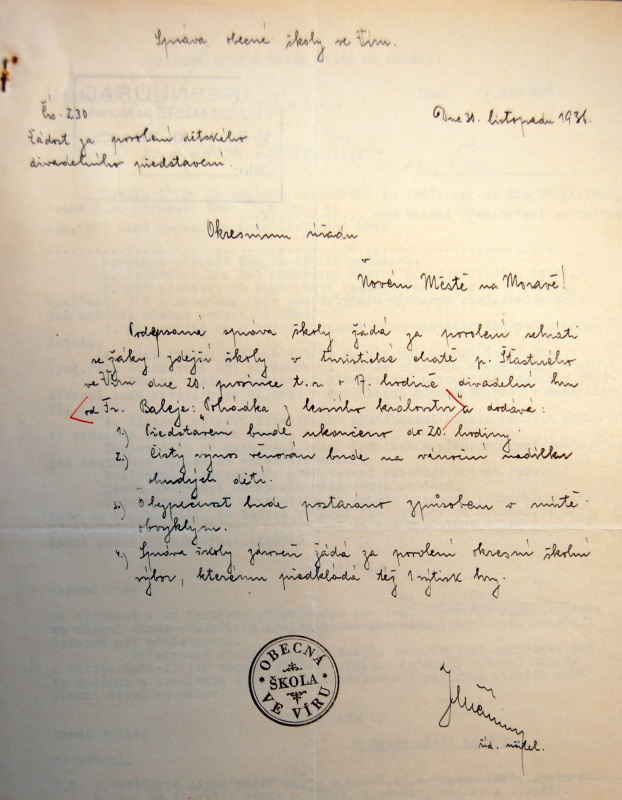 Správa obecné školy ve Víru.
Čís. 230
Dne 30. listopadu 1936.
Žádost za povolení dětského
divadelního představení.
Okresnímu úřadu
v
Novém Městě na Moravě!
Podepsaná správa školy žádá za povolení sehráti
se žáky zdejší školy v turistické chatě p. Šťastného
ve Víru dne 20. prosince t. r. v 17. hodině divadelní hru
od Fr. Baleje: "Pohádka z lesního království" a dodává:
1.) Představení bude ukončeno do 20. hodiny.
2.) Čistý výnos věnován bude na vánoční nadílku
chudých dětí.
3.) O bezpečnost bude postaráno způsobem v místě
obvyklým.
4.) Správa školy zároveň žádá za povolení okresní školní
výbor, kterému předkládá též 1 výtisk hry.
OBECNÁ
ŠKOLA
VE VÍRU
říd. učitel.